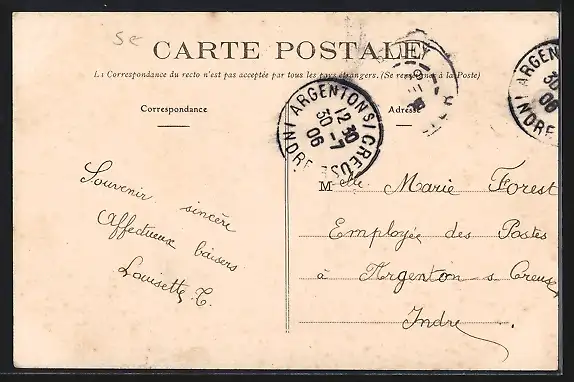 CARTE POSTALE
La Correspondance du recto n'est pas acceptée par tous les pays étrangers. (Se renseigner à la Poste)
Correspondance
Adresse
ARGENTON S/ CREUSE
12 30
30 -7
06
INDRE
ARGENTON
30
06
INDRE
Souvenir sincère
Affectueux baisers
Louisette. C.
Melle Marie Forest
Employée des Postes
à Argenton s Creuse
Indre.